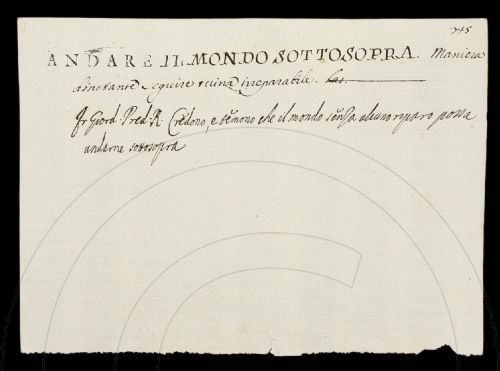 745
ANDARE IL MONDO SOTTOSOPRA. Maniera
dinotante seguire ruina irreparabile.
Fr Giord. Pred. R. Credono, e temono che il mondo senza alcun riparo possa
andarne sottosopra